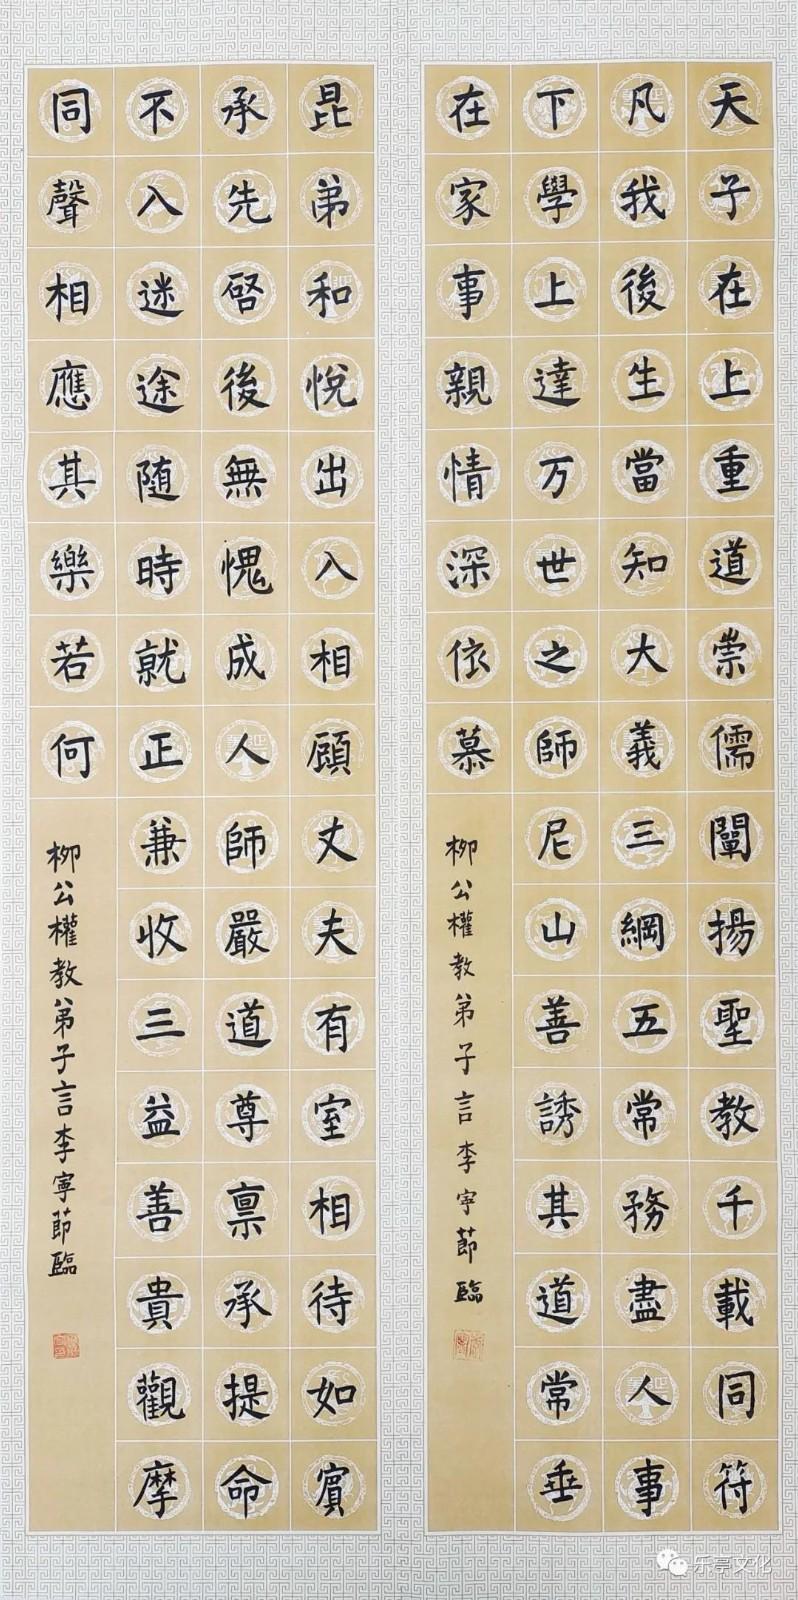 天子在上重道崇儒闡揚聖教千載同符
凡我後生當知大義三綱五常務盡人事
下學上達万世之師尼山善誘其道常垂
在家事親情深依慕
柳公權教弟子言李宁節臨
昆弟和悅出入相顧丈夫有室相待如賓
承先啓後無愧成人師嚴道尊禀承提命
不入迷途随時就正兼收三益善貴觀摩
同聲相應其樂若何
柳公權教弟子言李寧節臨
乐亭文化